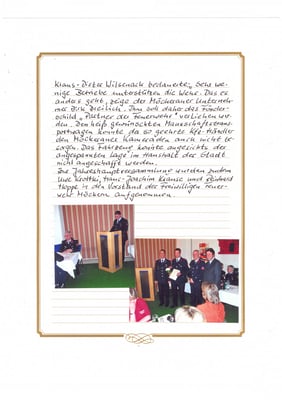 Klaus-Dieter Wilsenach bedauerte, sehr we-
nige Betriebe unterstützen die Wehr. Das es
anders geht, zeige der Möckeraner Unterneh-
mer Dirk Dreibrich. Ihm soll daher das Förder-
schild „Partner der Feuerwehr" verliehen wer-
den. Den heiß gewünschten Mannschaftstrans-
portwagen konnte da so geehrte Kfz-Händler
den Möckeraner Kameraden auch nicht be-
sorgen. Das Fahrzeug konnte angesichts der
angespannten Lage im Haushalt der Stadt
nicht angeschafft werden.
Zur Jahreshauptversammlung wurden zudem
Uwe Krottki, Hans-Joachim Krause und
Hoppe in den Vorstand der Freiwilligen Feuer-
wehr Möckern aufgenommen.